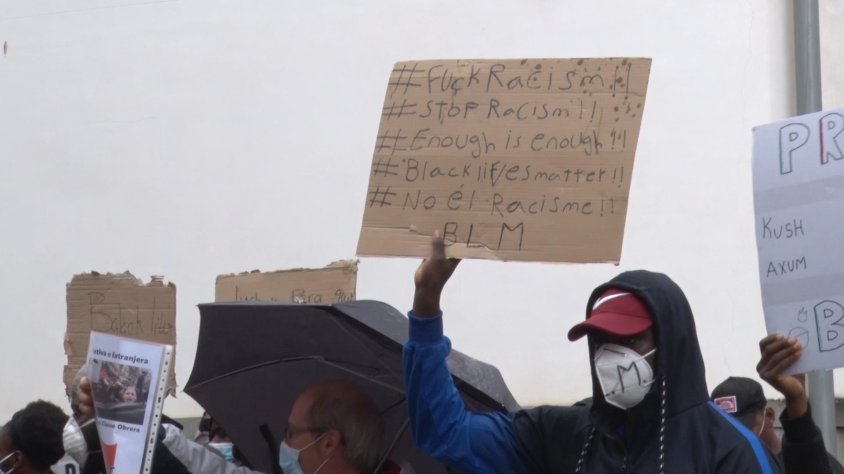 #Fuck Racism!!
#Stop Racism!!
#Enough is enough!!
#Black lives matter!!
#No él Racisme!!
BLM
PR
KUSH
AXUM
B
Para
e Extranjera
Clase Obrera
M